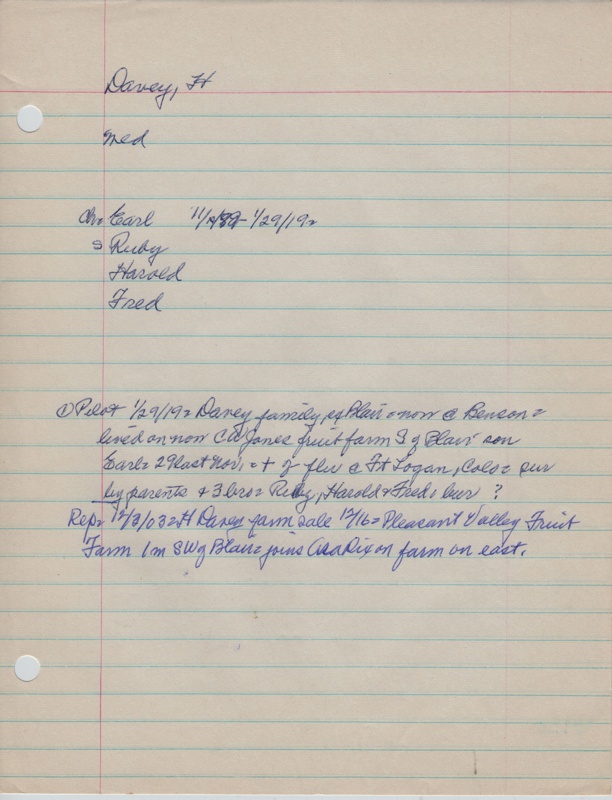 Davey, H
med
ch= Earl 11/ /89- 1/29/19=
Ruby
Harold
Fred
① Pilot 1/29/19= Davey family, of Blair= now @ Benson=
lived on now C A Jones fruit farm S of Blair= son
Earl= 29 last Nov.= + of flu @ Ft Logan, Colo= sur
by parents + 3 bros= Ruby, Harold + Fred; bur ?
Rep= 12/3/03= H Davey farm sale 12/16= Pleasant Valley Fruit
Farm 1 m SW of Blair= joins Asa Dixon farm on east.